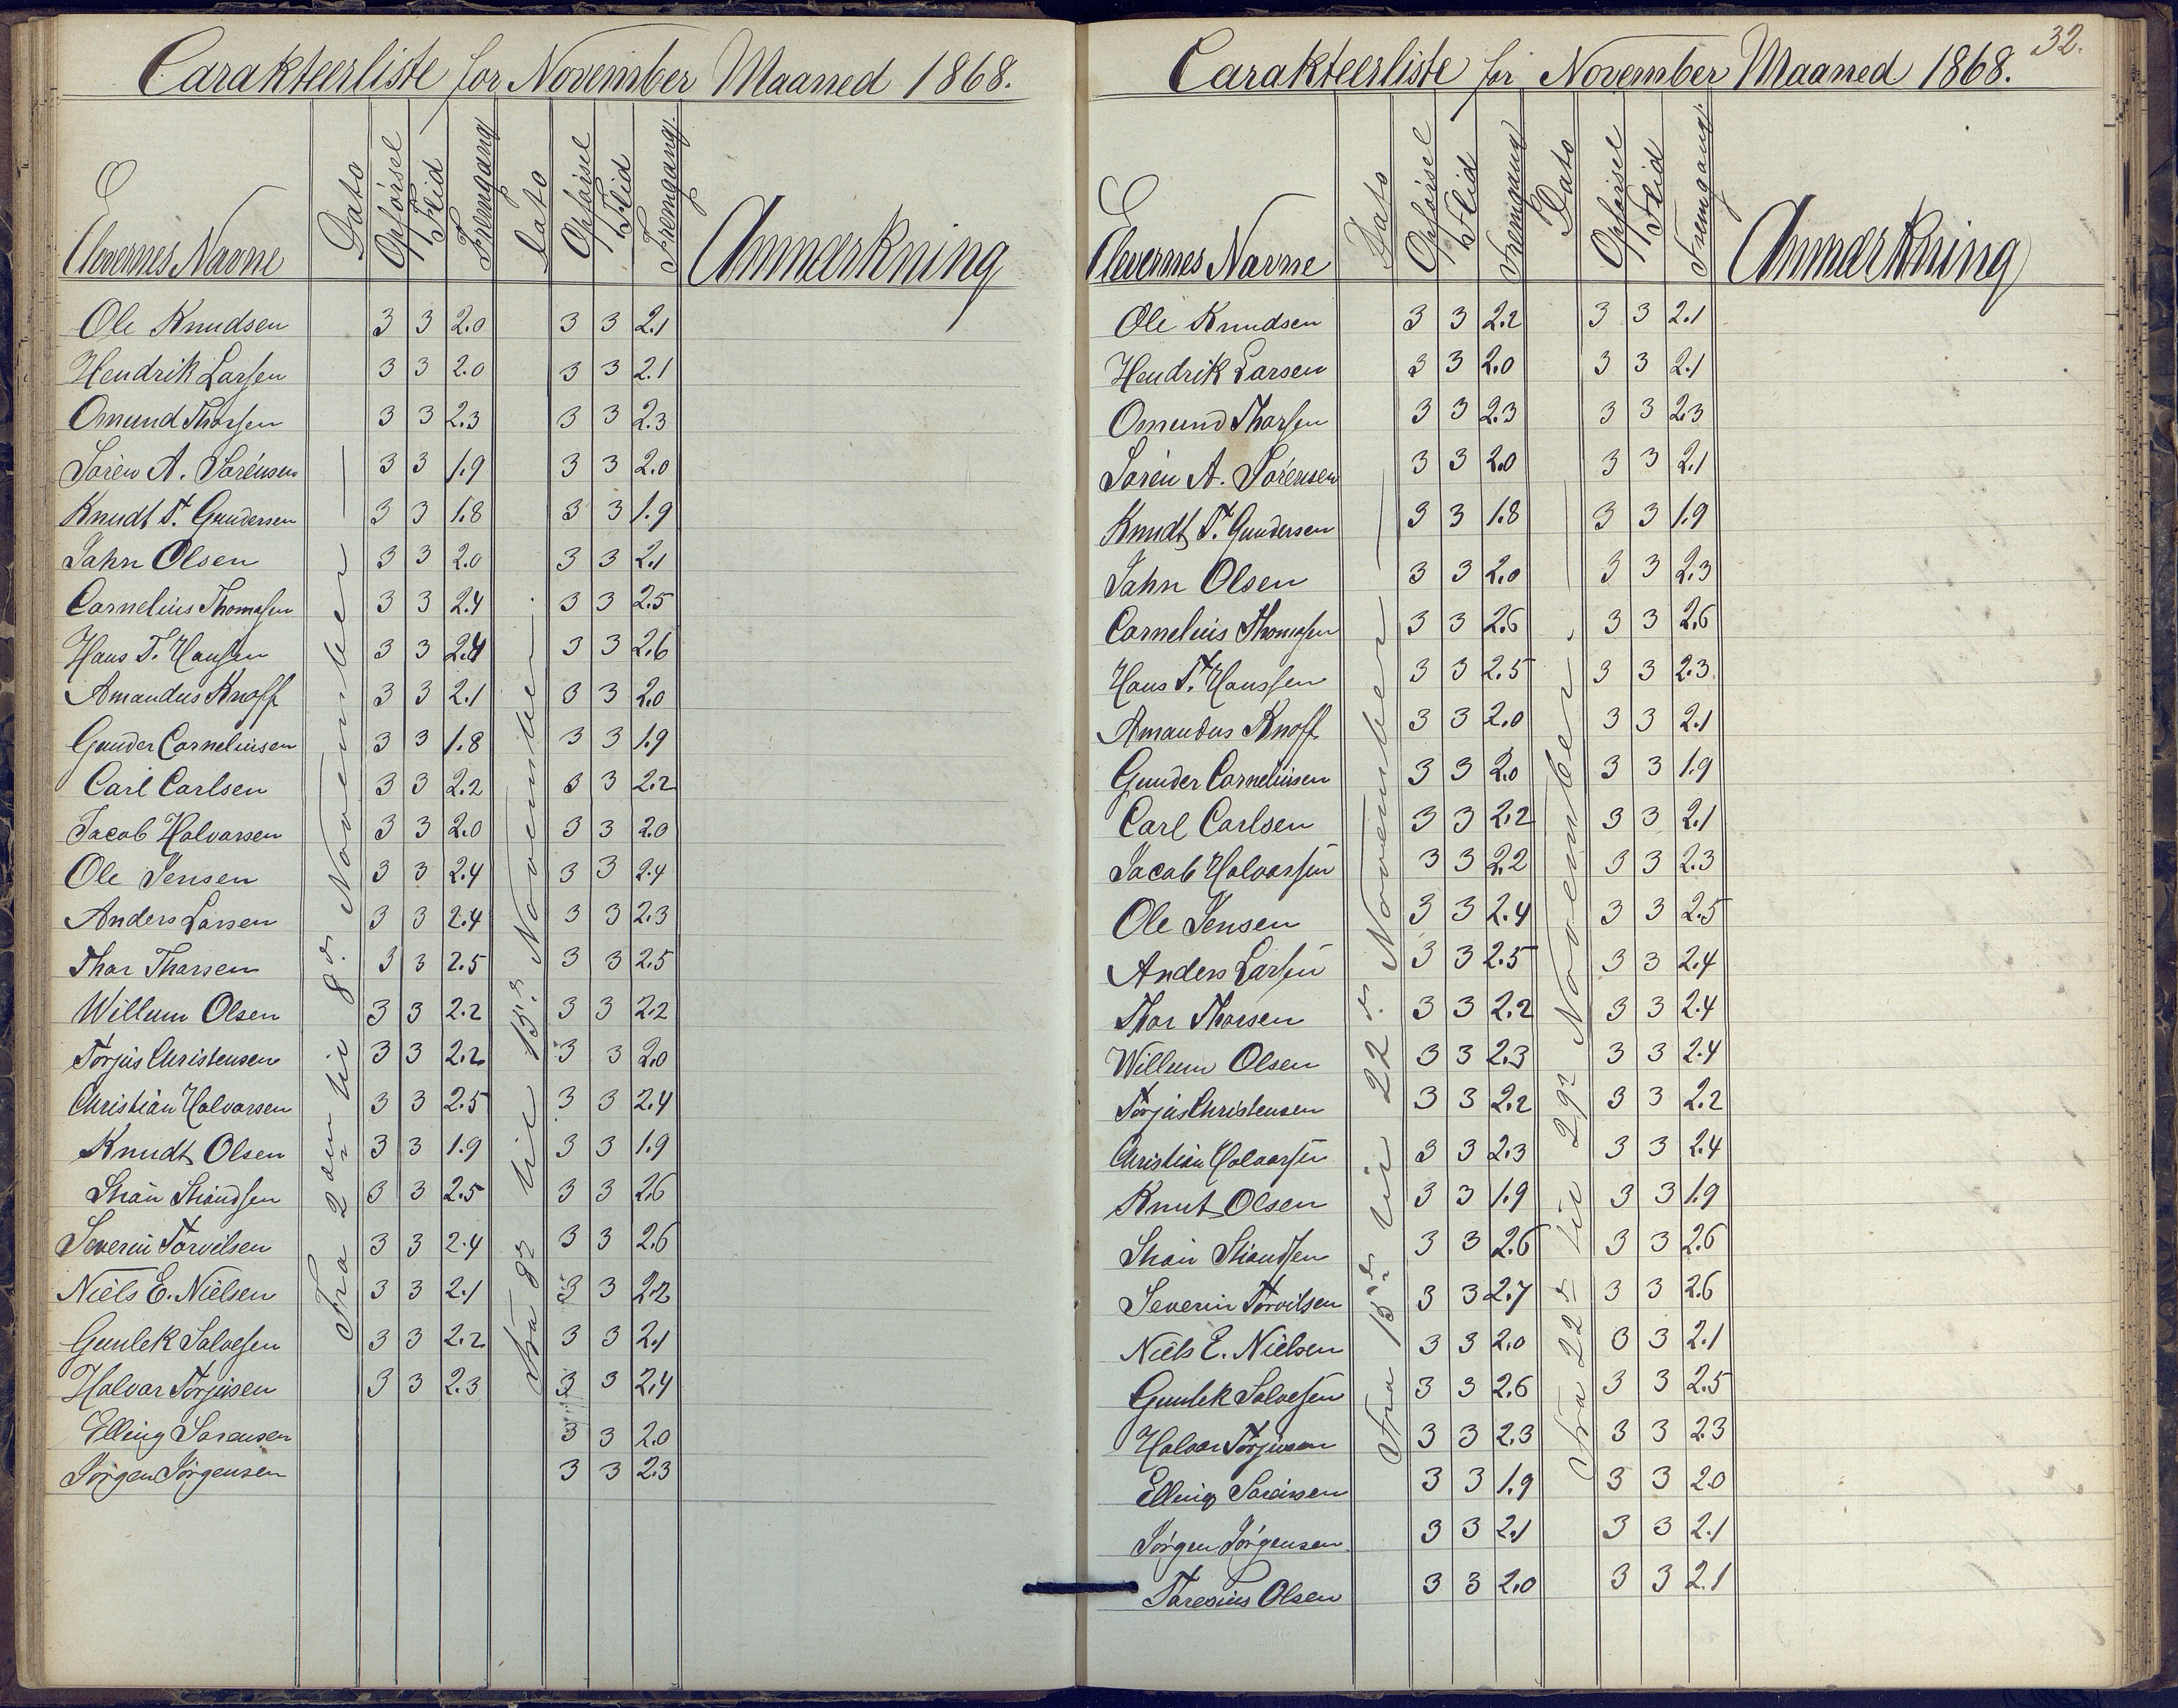 Carakteerliste for November Maaned 1868.
Elevernes Navne Dato Opførsel Flid Fremgang Dato Opførsel Flid Fremgang. Anmærkning
Fra 2den til 8de November
Fra 8de til 15de November.
Ole Knudsen 3 3 2.0 3 3 2.1
Hendrik Larsen 3 3 2.0 3 3 2.1
Omund Thorsen 3 3 2.3 3 3 2.3
Søren A. Sørensen 3 3 1.9 3 3 2.0
Knudt T. Gundersen 3 3 1.8 3 3 1.9
Jahn Olsen 3 3 2.0 3 3 2.1
Cornelius Thomasen 3 3 2.4 3 3 2.5
Hans T. Hansen 3 3 2.4 3 3 2.6
Amandus Knoff 3 3 2.1 3 3 2.0
Gunder Corneliusen 3 3 1.8 3 3 1.9
Carl Carlsen 3 3 2.2 3 3 2.2
Jacob Halvorsen 3 3 2.0 3 3 2.0
Ole Jensen 3 3 2.4 3 3 2.4
Anders Larsen 3 3 2.4 3 3 2.3
Thor Thorsen 3 3 2.5 3 3 2.5
Willum Olsen 3 3 2.2 3 3 2.2
Torjus Christensen 3 3 2.2 3 3 2.0
Christian Halvorsen 3 3 2.5 3 3 2.4
Knudt Olsen 3 3 1.9 3 3 1.9
3 3 2.5 3 3 2.6
Severin Torvilsen 3 3 2.4 3 3 2.6
Niels E. Nielsen 3 3 2.1 3 3 2.2
Gunlek Salvesen 3 3 2.2 3 3 2.1
Halvor Torjusen 3 3 2.3 3 3 2.4
Elling Sørensen 3 3 2.0
Jørgen Jørgensen 3 3 2.3
32.
Carakteerliste for November Maaned 1868.
Elevernes Navne Dato Opførsel Flid Fremgang Dato Opførsel Flid Fremgang. Anmærkning
Fra 15de til 22de November
Fra 22de til 29de November.
Ole Knudsen 3 3 2.2 3 3 2.1
Hendrik Larsen 3 3 2.0 3 3 2.1
Omund Thorsen 3 3 2.3 3 3 2.3
Søren A. Sørensen 3 3 2.0 3 3 2.1
Knudt T. Gundersen 3 3 1.8 3 3 1.9
Jahn Olsen 3 3 2.0 3 3 2.3
Cornelius Thomasen 3 3 2.6 3 3 2.6
Hans T. Hanssen 3 3 2.5 3 3 2.3
Amandus Knoff 3 3 2.0 3 3 2.1
Gunder Corneliusen 3 3 2.0 3 3 1.9
Carl Carlsen 3 3 2.2 3 3 2.1
Jacob Halvorsen 3 3 2.2 3 3 2.3
Ole Jensen 3 3 2.4 3 3 2.5
Anders Larsen 3 3 2.5 3 3 2.4
Thor Thorsen 3 3 2.2 3 3 2.4
Willum Olsen 3 3 2.3 3 3 2.4
Torjus Christensen 3 3 2.2 3 3 2.2
Christian Halvorsen 3 3 2.3 3 3 2.4
Knut Olsen 3 3 1.9 3 3 1.9
3 3 2.6 3 3 2.6
Severin Torvilsen 3 3 2.7 3 3 2.6
Niels E. Nielsen 3 3 2.0 3 3 2.1
Gunlek Salvesen 3 3 2.6 3 3 2.5
Halvor Torjusen 3 3 2.3 3 3 2.3
Elling Sørensen 3 3 1.9 3 3 2.0
Jørgen Jørgensen 3 3 2.1 3 3 2.1
Taresius Olsen 3 3 2.0 3 3 2.1